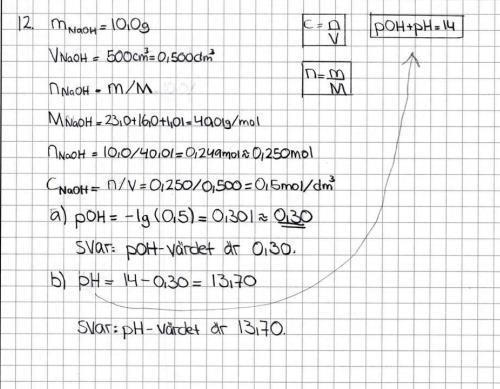 12. m NaOH = 10,0g
c = n/V
pOH + pH = 14
V NaOH = 500cm³ = 0,500dm³
n = m/M
n NaOH = m/M
M NaOH = 23,0+16,0+1,01 = 40,01g/mol
n NaOH = 10,0/40,01 = 0,249mol ≈ 0,250mol
C NaOH = n/V = 0,250/0,500 = 0,5mol/dm³
a) pOH = -lg (0,5) = 0,301 ≈ 0,30
Svar: pOH-värdet är 0,30.
b) pH = 14 - 0,30 = 13,70
Svar: pH-värdet är 13,70.